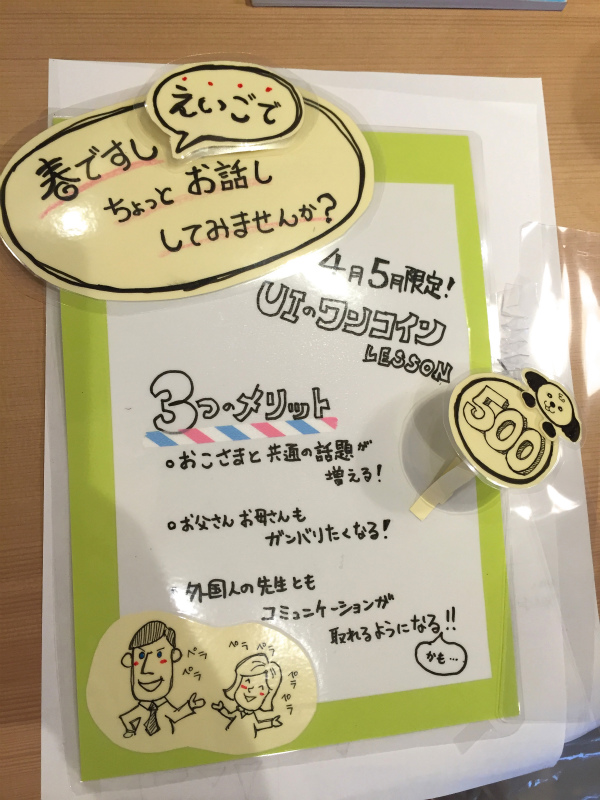 えいごで
春ですし
ちょっとお話し
してみませんか?
4月5月限定!
UIのワンコイン
LESSON
500
3つのメリット
おこさまと共通の話題が
増える!
お父さんお母さんも
ガンバリたくなる!
外国人の先生とも
コミュニケーションが
取れるようになる!!
かも…
ペラ
ペラ
ペラ
ペラ
ペラ
ペラ